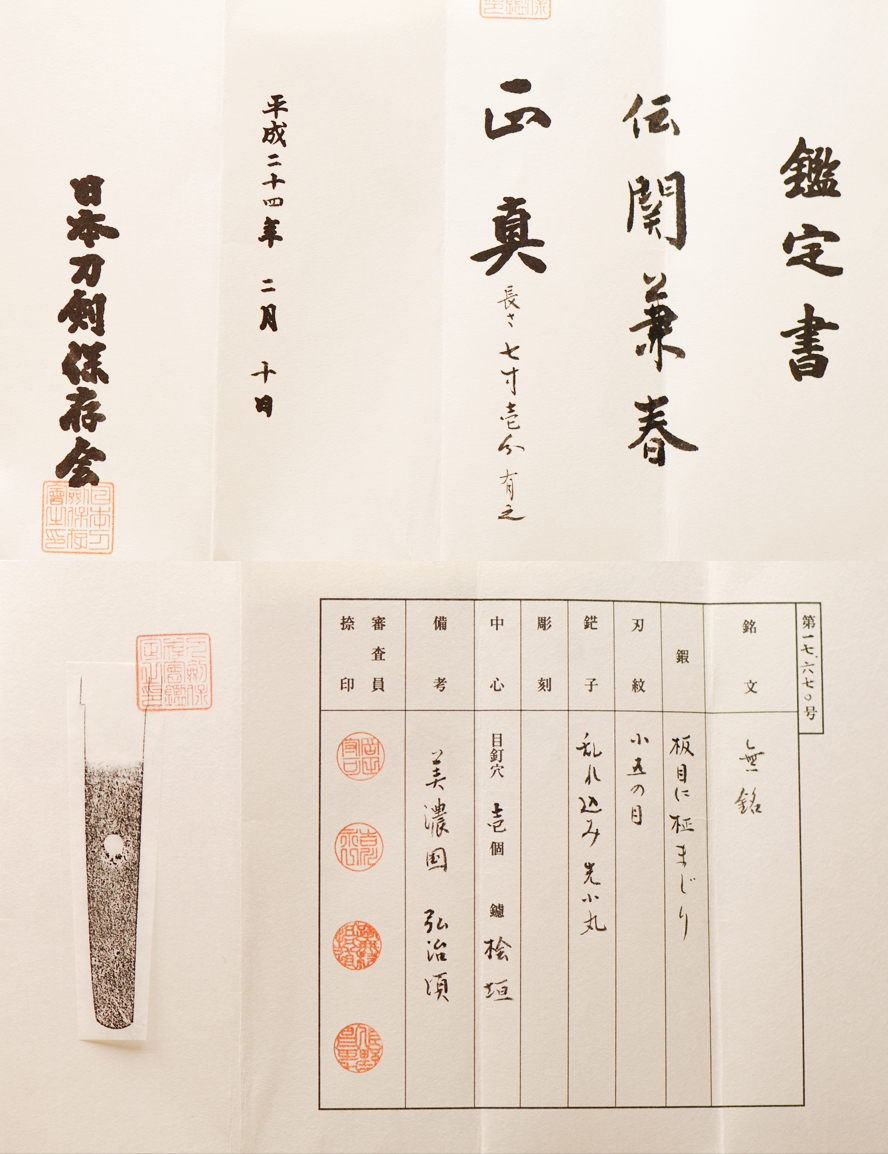 鑑定書
伝 関兼春
正真 長さ七寸壱分有之
平成二十四年 二月 十日
日本刀剣保存会
第一七、六七〇号
銘文
無銘
鍜
板目に柾まじり
刃紋
小互の目
鋩子
乱れ込み先小丸
彫刻
中心
目釘穴 壱個 鑢 桧垣
備考
美濃国 弘治頃
審査員
捺印